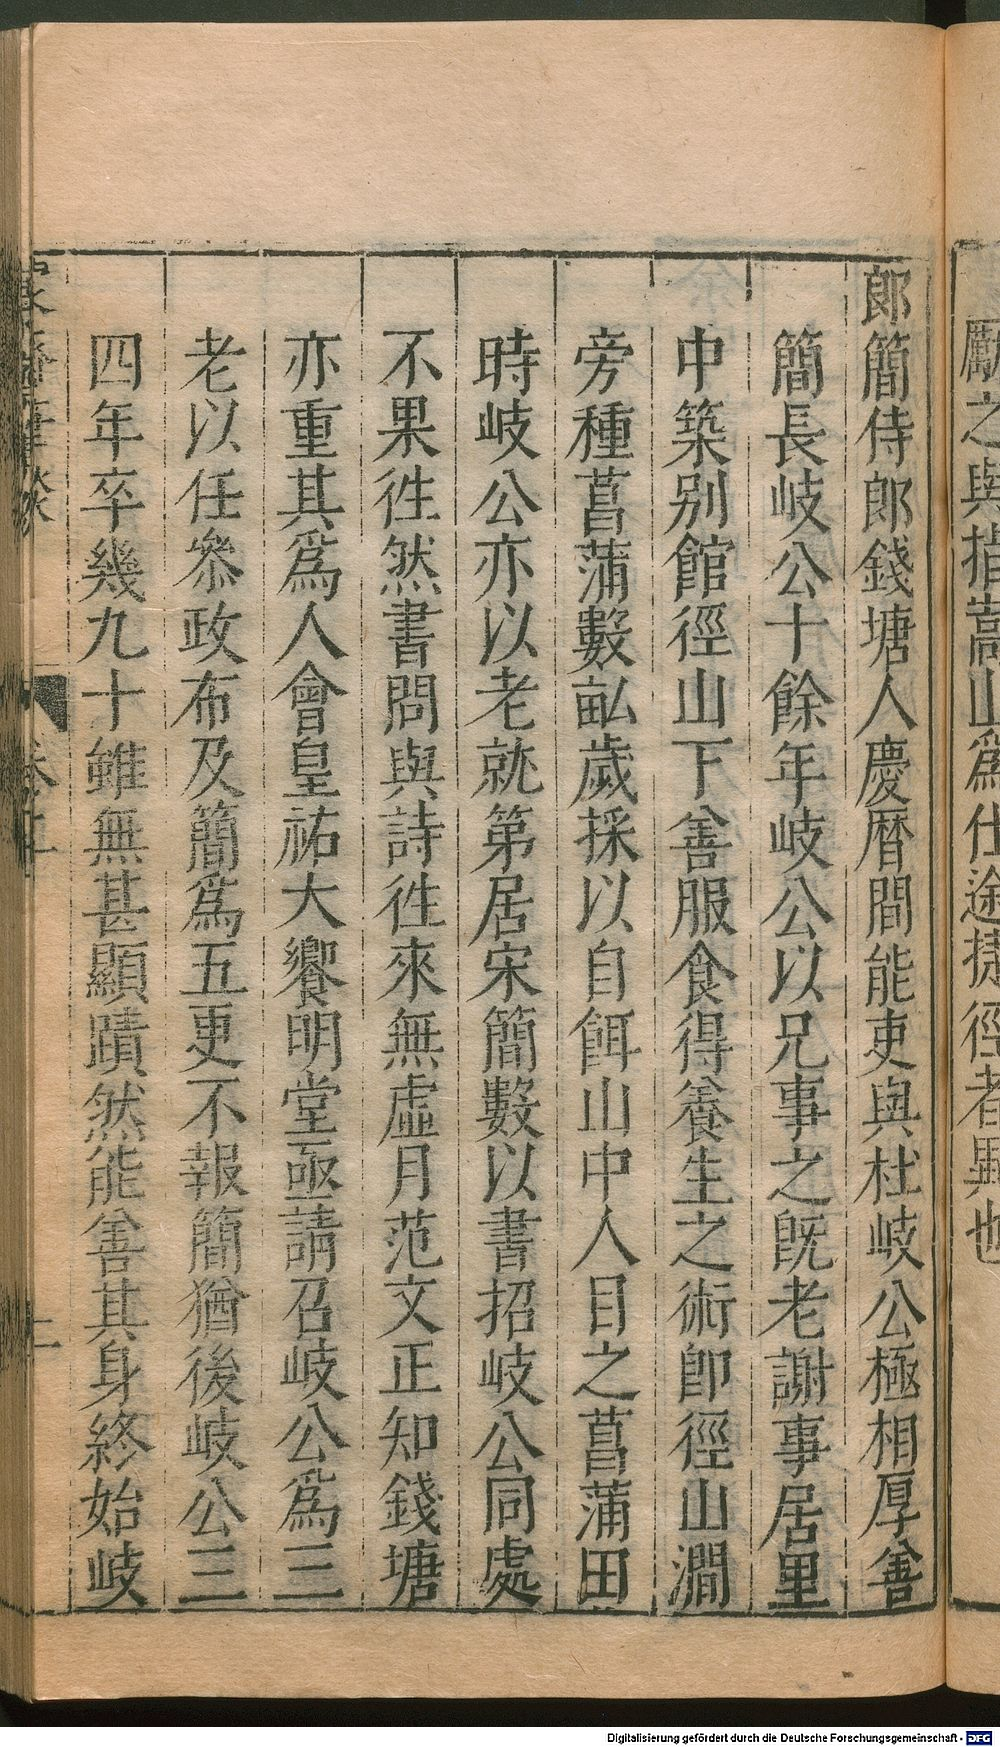 厭之與指嵩山爲仕途捷徑者異也
郎簡侍郎錢塘人慶曆間能吏與杜岐公極相厚善
簡長岐公十餘年岐公以兄事之旣老謝事居里
中築别館徑山下善服食得養生之術卽徑山澗
旁種菖蒲數畝歲採以自餌山中人目之菖蒲田
時岐公亦以老就第居宋簡數以書招岐公同處
不果徃然書問與詩徃來無虛月范文正知錢塘
亦重其爲人會皇祐大饗明堂亟請召岐公爲三
老以任叅政布及簡爲五更不報簡猶後岐公三
四年卒幾九十雖無甚顯蹟然能善其身終始岐
Digitalisierung gefördert durch die Deutsche Forschungsgemeinschaft - DFG